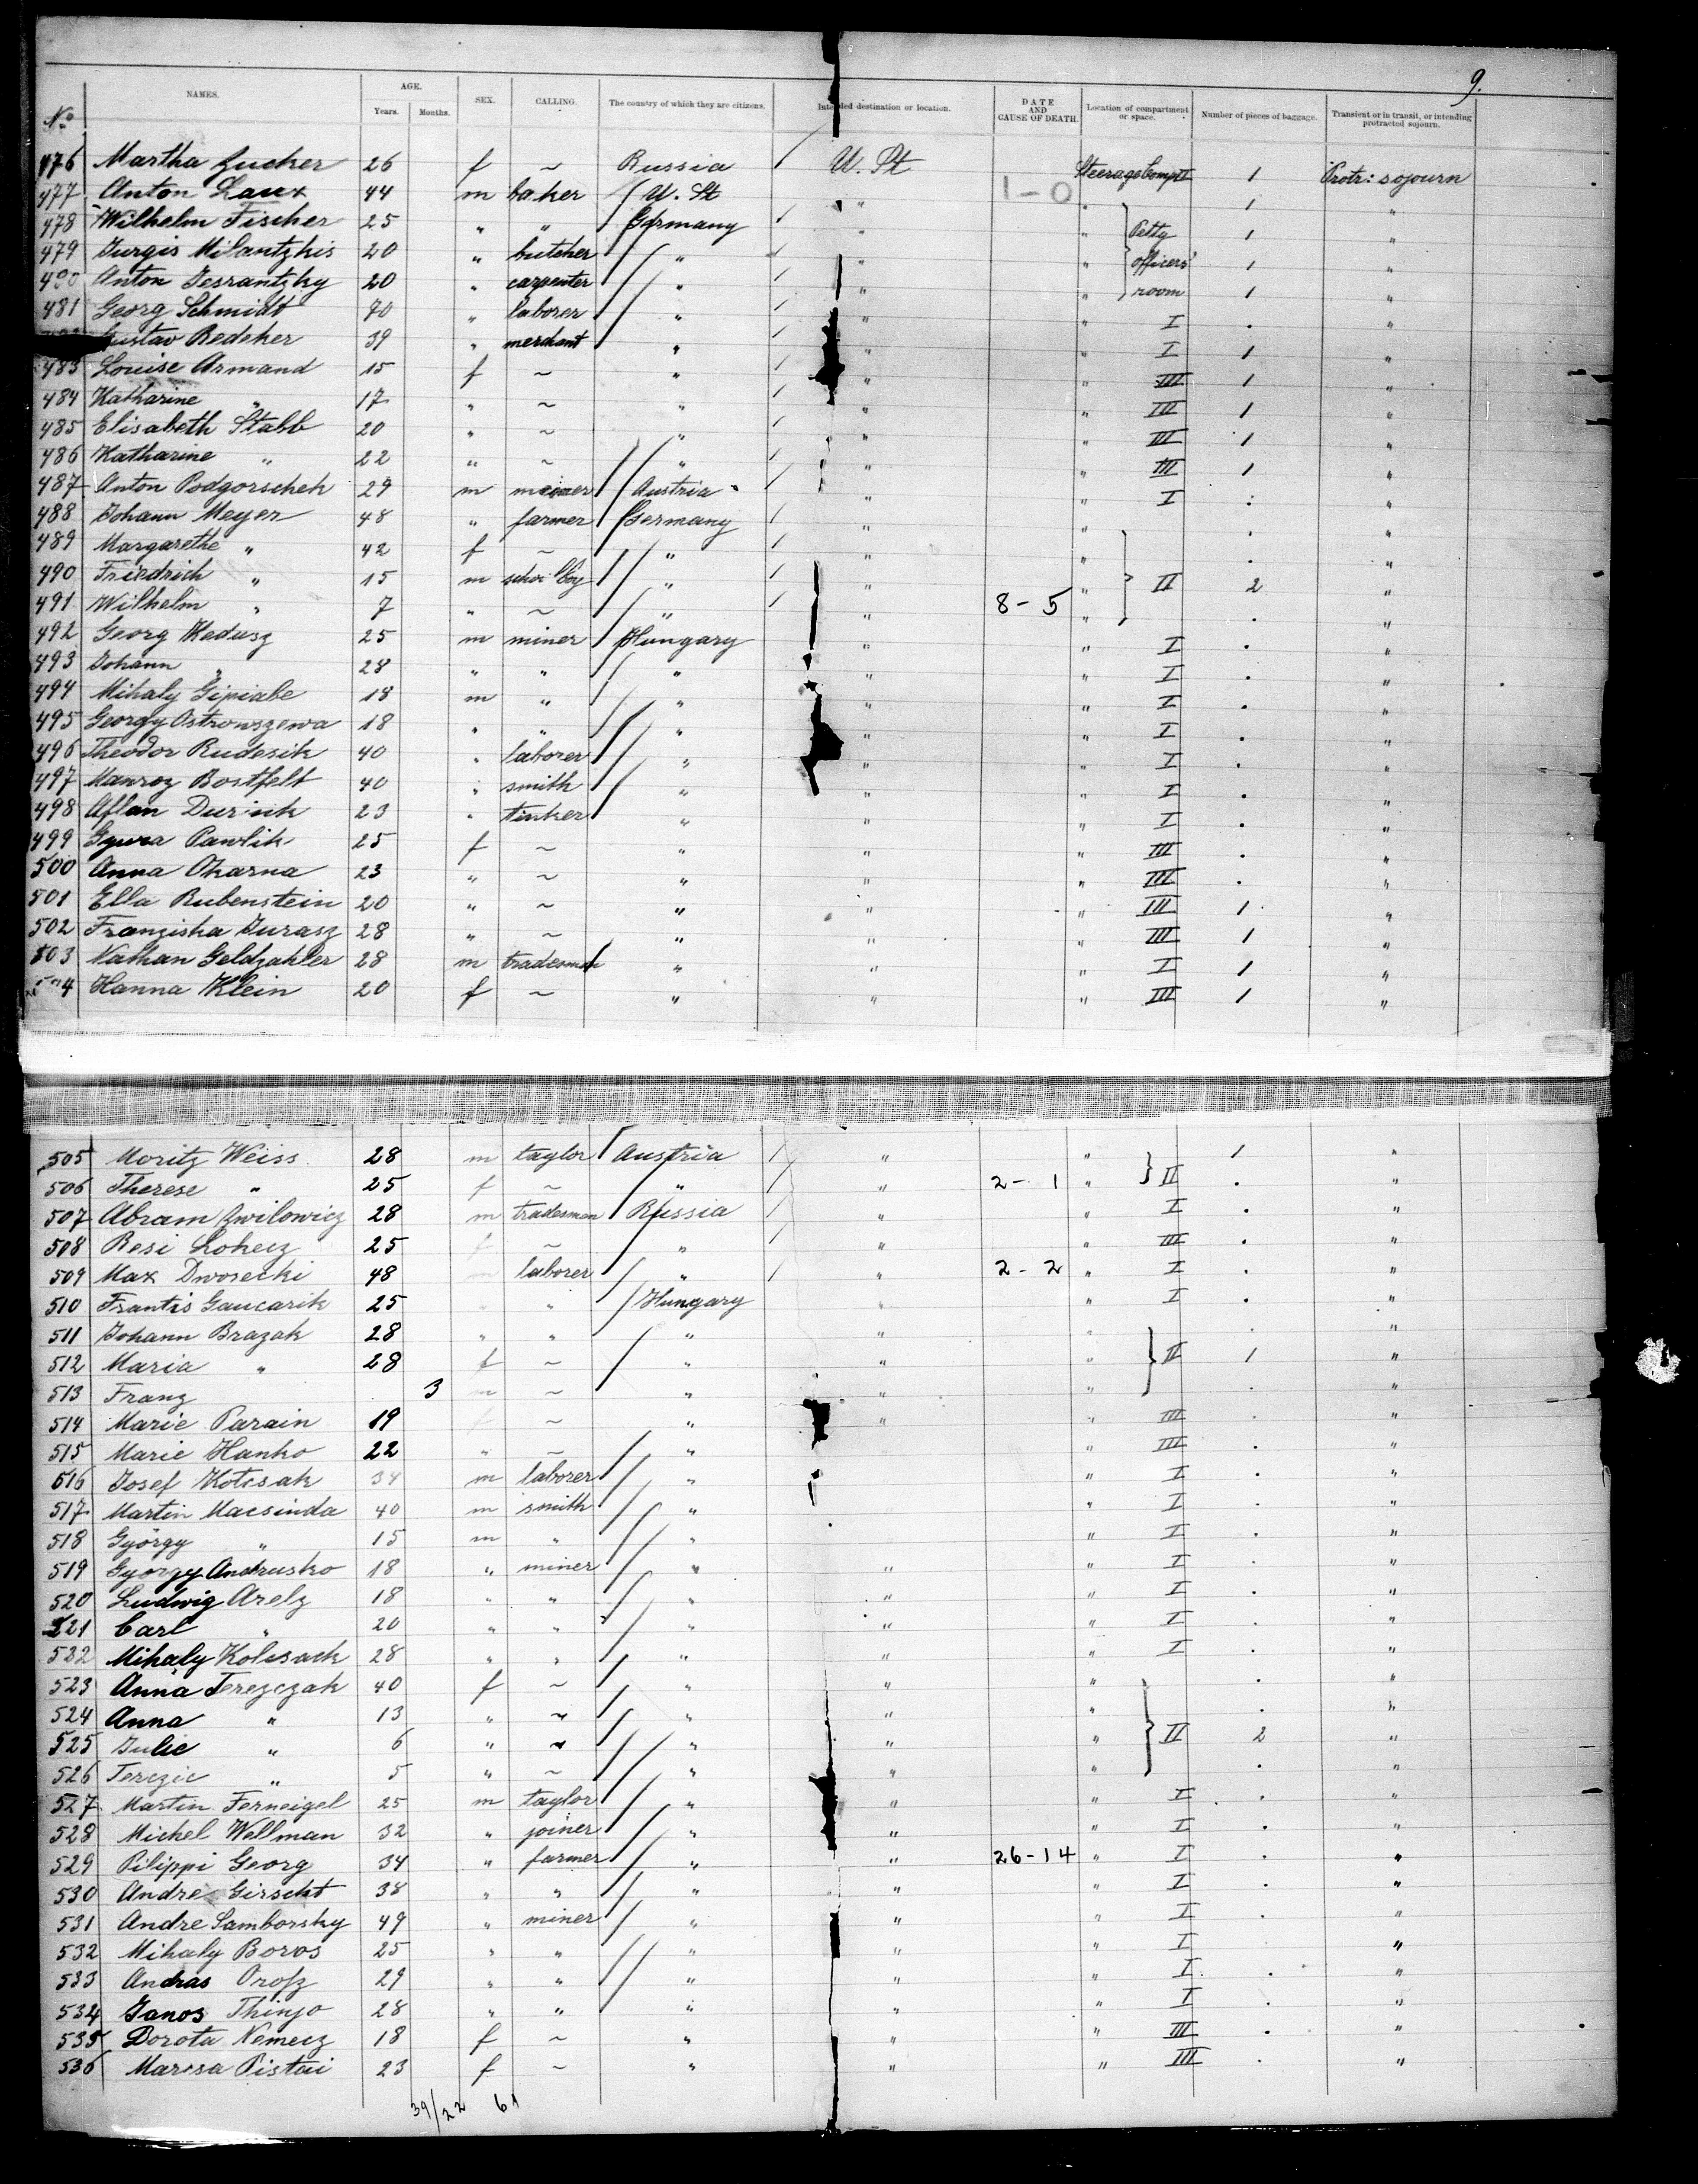 9.
No. NAMES. AGE. Years. Months. SEX. CALLING. The country of which they are citizens. Intended destination or location. DATE AND CAUSE OF DEATH. Location of compartment or space. Number of pieces of baggage. Transient or in transit, or intending protracted sojourn.
476 Martha Zucker 26 f ~ Russia / U. St Steerage Comp II 1 Protr: sojourn
477 Anton Laux 44 m baker U. St 1-0 " 1 "
478 Wilhelm Fischer 25 " " Germany / " " Petty 1 "
479 Jurgis Milantzkis 20 " butcher " / " " officers' 1 "
480 Anton Jesrantzky 20 " carpenter " / " " room 1 "
481 Georg Schmidt 70 " laborer " / " " I . "
Gustav Redeker 39 " merchant " / " " I 1 "
483 Louise Armand 15 f ~ " / " " III 1 "
484 Katharine " 17 " ~ " / " " III 1 "
485 Elisabeth Stabb 20 " ~ " / " " III 1 "
486 Katharine " 22 " ~ " / " " III 1 "
487 Anton Podgorschek 29 m Austria / " " I . "
488 Johann Meyer 48 " farmer Germany / " " . "
489 Margarethe " 42 f ~ " / " " . "
490 Friedrich " 15 m " / " " II 2 "
491 Wilhelm " 7 " ~ " / " 8-5 " . "
492 Georg Kedusz 25 m miner Hungary " " I . "
493 Johann " 28 " " " " " I . "
494 Mihaly Gipiabe 18 m " " " " I . "
495 Georgy Ostrowszewa 18 " " " " " I . "
496 Theodor Rudesik 40 " laborer " " " I . "
497 Manroz Bostfelt 40 " smith " " " I . "
498 Aflan Durisik 23 " tinker " " " I . "
499 Gyura Pawlik 25 f ~ " " " III . "
500 Anna Oharna 23 " ~ " " " III . "
501 Ella Rubenstein 20 " ~ " " " III 1 "
502 Franziska Jurasz 28 " ~ " " " III 1 "
503 Nathan Geldzahler 28 m tradesman " " " I 1 "
4 Hanna Klein 20 f ~ " " " III 1 "
505 Moritz Weiss 28 m taylor Austria / " " 1 "
506 Therese " 25 f ~ " / " 2-1 " II . "
507 Abram Zwilowicz 28 m tradesman Russia / " " I . "
508 Resi Lohecz 25 f ~ " / " " III . "
509 Max Dwosecki 48 m laborer " / " 2-2 " I . "
510 Frantis Gaucarik 25 " " Hungary " " I . "
511 Johann Brazak 28 " " " " " . "
512 Maria " 28 f ~ " " " II 1 "
513 Franz 3 m ~ " " " . "
514 Marie Parain 19 f ~ " " " III . "
515 Marie Hanko 22 " ~ " " III . "
516 Josef Kotcsak 34 m laborer " " I . "
517 Martin Macsinda 40 m smith " " I . "
518 György " 15 m " " " I . "
519 Gyorgy Andrusko 18 " miner " " " I . "
520 Ludwig Arelz 18 " " " " " I . "
521 Carl " 20 " " " " " I . "
522 Mihaly Kolcsack 28 " " " " " I . "
523 Anna Terezczak 40 f ~ " " " . "
524 Anna " 13 " ~ " " " . "
525 Julie " 6 " ~ " " " II 2 "
526 Terezie " 5 " ~ " " " . "
527 Martin Ferneigel 25 m taylor " " " I . "
528 Michel Wellman 32 " joiner " " " I . "
529 Pilippi Georg 34 " farmer " " 26-14 " I . "
530 Andre Girscht 38 " " " " " I . "
531 Andre Samborsky 49 " miner " " " I . "
532 Mihaly Boros 25 " " " " " I . "
533 Andras Orosz 29 " " " " " I . "
534 Janos Thinjo 28 " " " " " I "
535 Dorota Nemecz 18 f ~ " " " III . "
536 Maresa Pistai 23 f ~ " " " III . "
39/22 61